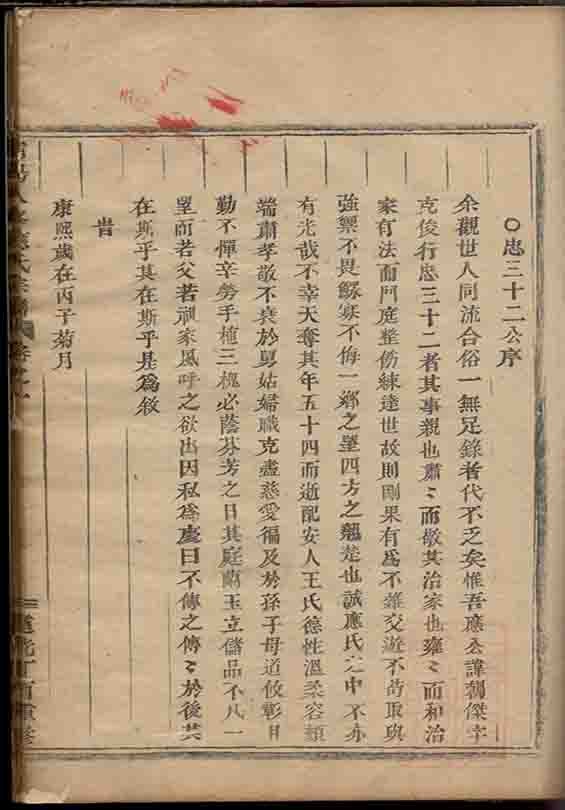 ○忠三十二公序
余觀世人同流合俗一無足錄者代不乏矣惟吾應公諱朝傑幸
克俊行忠三十二者其事親也肅〻而敬其治家也雍〻而和治
家有法而門庭整飭練達世故則剛果有爲不雜交遊不苟取與
強禦不畏鰥寡不侮一鄉之望四方之翹楚也誠應氏之中不亦
有光哉不幸天奪其年五十四而逝配安人王氏德性溫柔容顏
端肅孝敬不衰於舅姑婦職克盡慈愛福及於孫子母道攸彰且
勤不憚辛勞手植三槐必蔭芬芳之日其庭蘭玉立儲品不凡一
望而若父若祖家風呼之欲出因私爲慶曰不傳之傳〻於後其
在斯乎其在斯乎是爲敘
旹
康熙歲在丙子菊月
氏宗譜 卷之